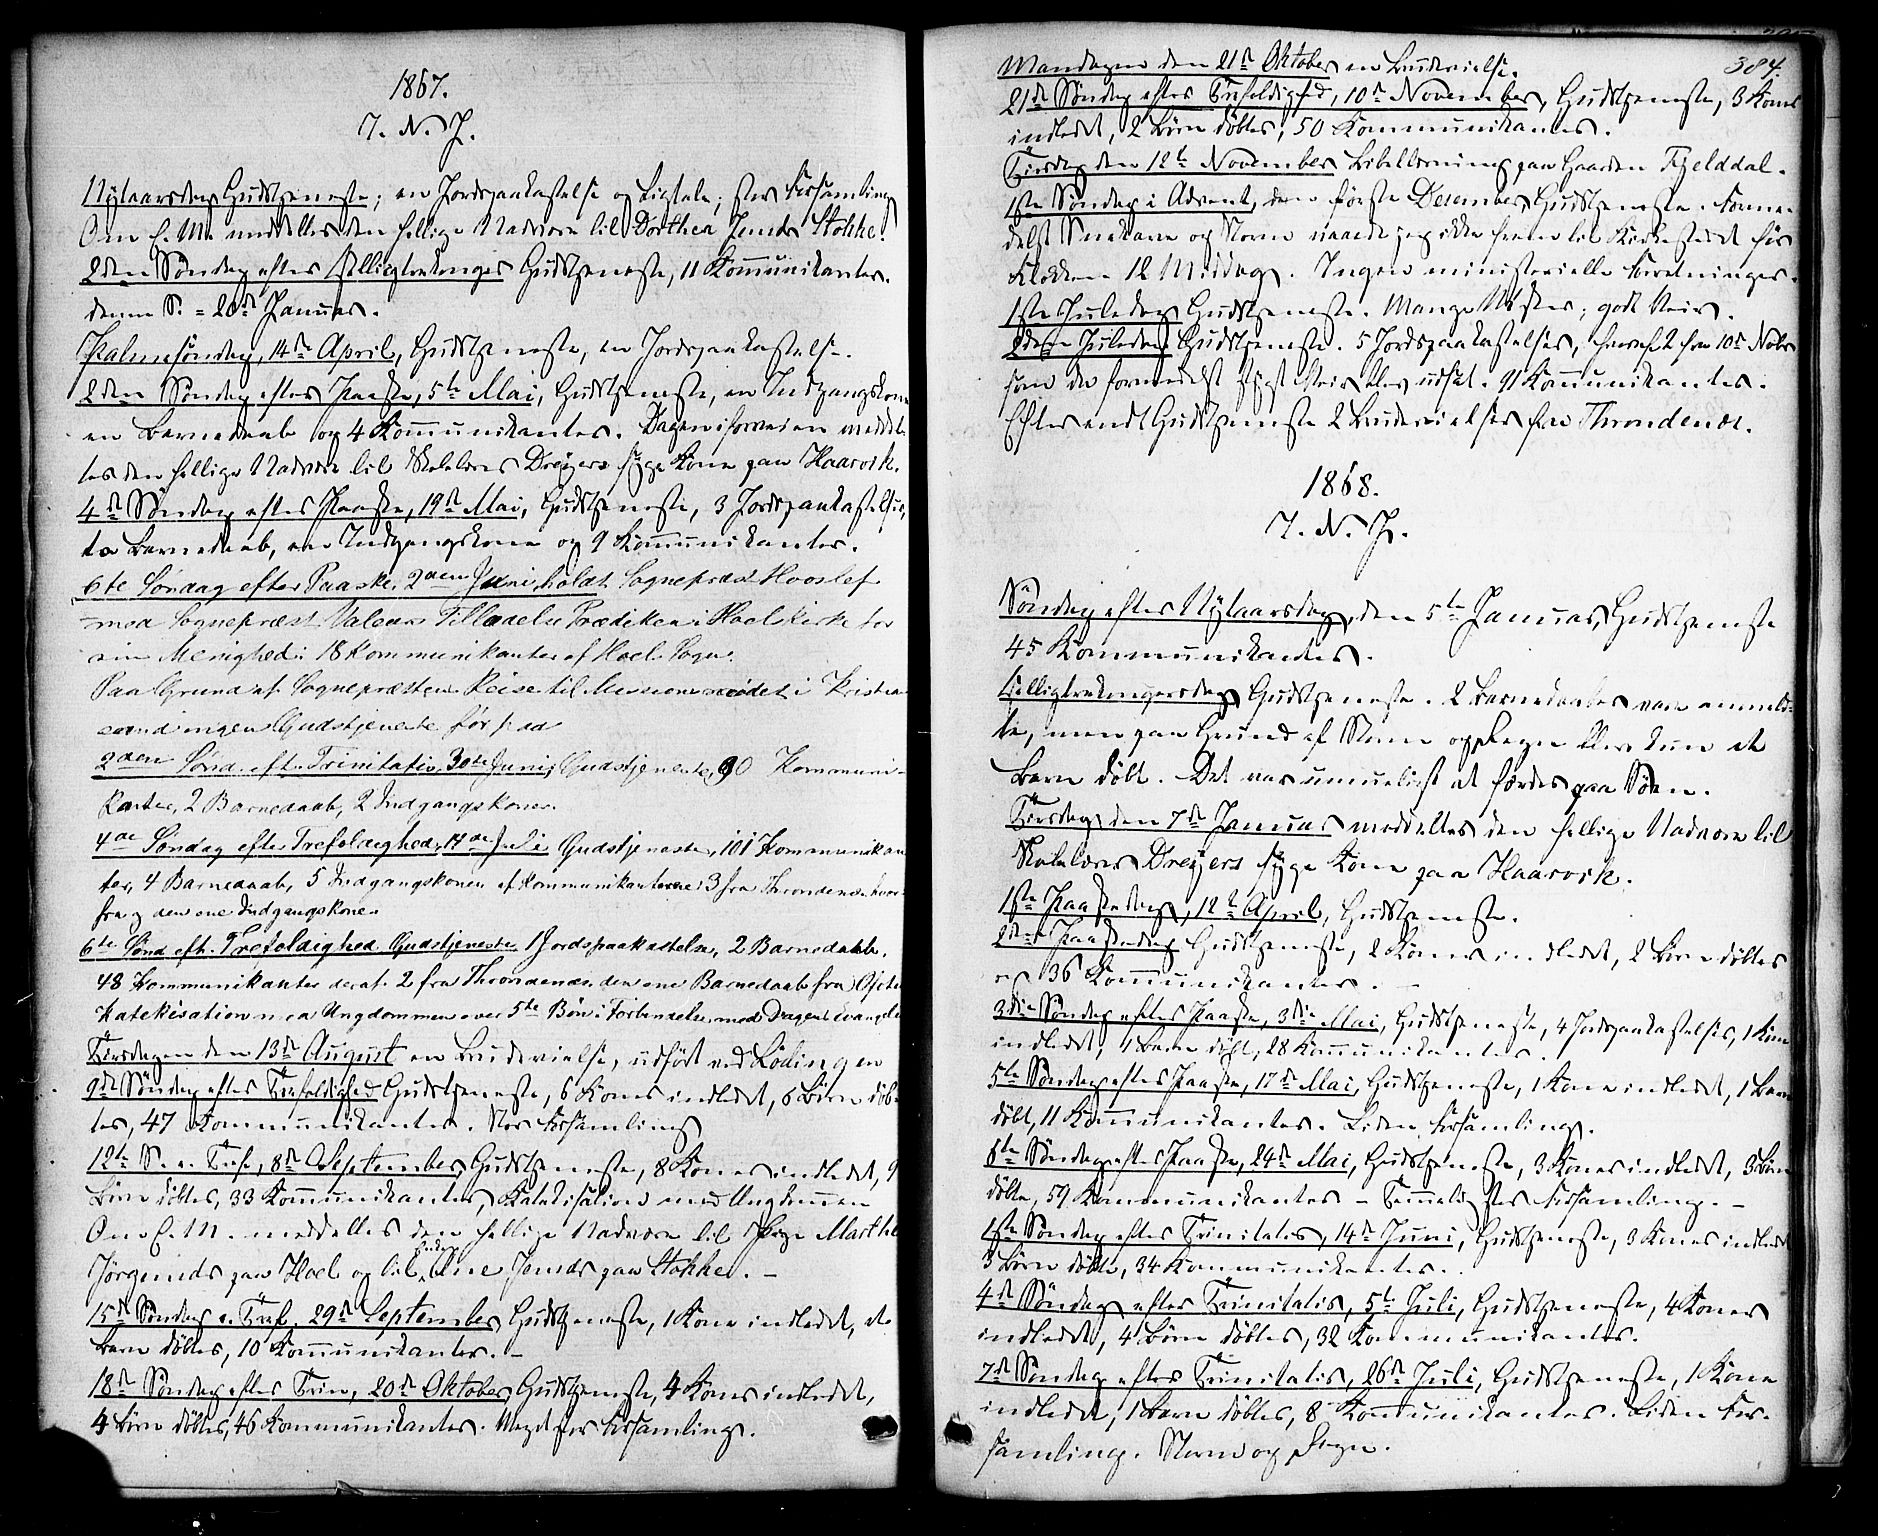 1867.
I. N. J.
Nytaarsdag Gudstjeneste; en Jordspaakastelse og Ligtale; stor Forsamling
Om E. M. meddeltes den hellige Nadvere til Dorthea Jensd. Stokke.
2den Søndag efter Helligtrekonger Gudstjeneste, 11 Kommunikanter.
denne S. = 20de Januar.
Palmesøndag, 14de April, Gudstjeneste, en Jordspaakastelse.
2den Søndag efter Paaske, 5te Mai, Gudstjeneste, en Indgangskone
en Barnedaab og 4 Kommunikanter. Dagen iforveien meddel-
tes den hellige Nadvere til Skolelærer Dreyers syge Kone paa Haarvik.
4de Søndag efter Paaske, 19de Mai, Gudstjeneste, 3 Jordspaakastelser,
to Barnedaab, en Indgangskone og 9 Kommunikanter.
6te Søndag efter Paaske, 2den Juni, holdt Sognepræst Hooslef
med Sognepræst Valeurs Tilladelse Prædiken i Hoels Kirke for
sin Menighed: 18 Kommunikanter af Hoel Sogn.
Paa Grund af Sognepræstens Reise til Missionsmødet i Kristian
sand ingen Gudstjeneste før paa
2den Sønd. eft. Trinitatis, 30te Juni, Gudstjeneste, 30 Kommuni-
kanter, 2 Barnedaab, 2 Indgangskoner.
4de Søndag efter Trefoldighed, 14de Juli Gudstjeneste, 101 Kommunikan
ter, 4 Barnedaab, 5 Indgangskoner af Kommunikanterne: 3 fra Throndenæs hvor-
fra og den ene Indgangskone.
6te Sønd. eft. Trefoldighed Gudstjeneste 1 Jordspaakastelse, 2 Barnedaab.
48 Kommunikanter deraf 2 fra Throndenæs den ene Barnedaab fra
Katekisation med Ungdommen over 5te Bøn i Forbindelse med Dagens Evangeli
Tirsdagen den 13de August en Brudevielse, udført ved Lødingen
9de Søndag efter Trefoldighed Gudstjeneste, 6 Koner indledet, 6 Børn døb-
tes, 47 Kommunikanter. Stor Forsamling
12te S. e. Tref., 8de September, Gudstjeneste, 8 Koner indledet, 9
Børn døbtes, 33 Kommunikanter, Katekisation med Ungdommen
Om E. M. meddeltes den hellige Nadvere til syge Marthe
Jørgensd. paa Hoel og til Enken Ane Jensd. paa Stokke. –
15de Søndag e. Tref. 29de September, Gudstjeneste, 1 Kone indledet, et
Barn døbtes, 10 Kommunikanter. –
18de Søndag efter Trin., 20de Oktober, Gudstjeneste, 4 Koner indledet,
4 Børn døbtes, 46 Kommunikanter. Meget stor Forsamling.
384.
Mandagen den 21de Oktober en Brudevielse.
21de Søndag efter Trefoldighed, 10de November, Gudstjeneste, 3 Koner
indledet, 2 Børn døbtes, 50 Kommunikanter.
Tirsdag den 12te November Bibellæsning paa Gaarden Fjelddal.
1ste Søndag i Advent, den første Desember, Gudstjeneste. Forme-
delst Snekave og Storm naaede jeg ikke frem til Kirkestedet før
Klokken 12 Middag. Ingen ministerielle Forretninger.
1ste Juledag Gudstjeneste. Mange Msker, godt Veir.
2den Juledag Gudstjeneste. 5 Jordspaakastelser, hvoraf 2 fra 10de Nobr
som da formedelst stygt Veir blev udsat. 9 Kommunikanter.
Efter endt Gudstjeneste 2 Brudevielser fra Throndenæs.
1868.
I. N. J.
Søndag efter Nytaarsdag, den 5te Januar, Gudstjeneste
45 Kommunikanter.
Helligtrekongersdag Gudstjeneste. 2 Barnedaaber vare anmeld-
te, men paa Grund af Storm og Regn blev kun et
Barn døbt. Det var umueligt at færdes paa Søen.
Tirsdag den 7de Januar meddeltes den hellige Nadvere til
Skolelærer Dreyers syge Kone paa Haarvik.
1ste Paaskedag, 12te April, Gudstjeneste.
2den Paaskedag Gudstjeneste, 2 Koner indledet, 2 Børn døbtes
og 36 Kommunikanter. –
3die Søndag efter Paaske, 3die Mai, Gudstjeneste, 4 Jordspaakastelser, 1 Kone
indledet, 1 Barn døbt, 28 Kommunikanter.
5te Søndag efter Paaske, 17de Mai, Gudstjeneste, 1 Kone indledet, 1 Barn
døbt, 11 Kommunikanter. Liden Forsamling.
6te Søndag efter Paaske, 24de Mai, Gudstjeneste, 3 Koner indledet, 3 Børn
døbte, 59 Kommunikanter – Temmelig stor Forsamling. –
1ste Søndag efter Trinitatis, 14de Juni, Gudstjeneste, 3 Koner indledet
3 Børn døbte, 34 Kommunikanter.
4de Søndag efter Trinitatis, 5te Juli, Gudstjeneste, 4 Koner
indledet, 4 Børn døbtes, 32 Kommunikanter.
7de Søndag efter Trinitatis, 26de Juli, Gudstjeneste, 1 Kone
indledet, 1 Barn døbtes, 8 Kommunikanter. Liden For-
samling. Storm og Regn.